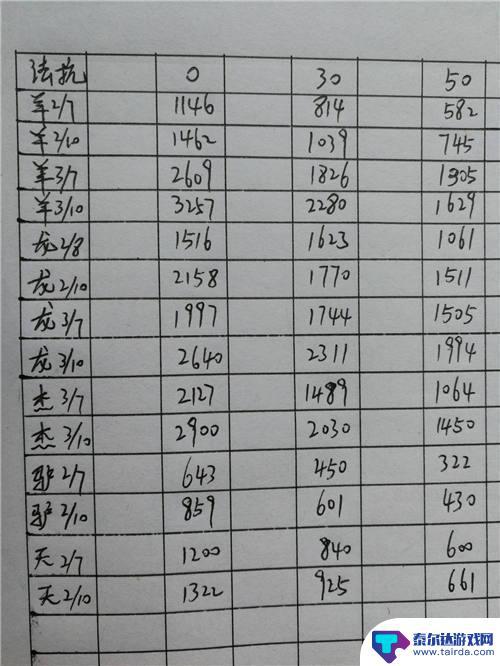 法抗 0 30 50
羊2/7 1146 814 582
羊2/10 1462 1039 745
羊3/7 2609 1826 1305
羊3/10 3257 2280 1629
龙2/8 1516 1623 1061
龙2/10 2158 1770 1511
龙3/7 1997 1744 1505
龙3/10 2640 2311 1994
杰3/7 2127 1489 1064
杰3/10 2900 2030 1450
驴2/7 643 450 322
驴2/10 859 601 430
天2/7 1200 840 600
天2/10 1322 925 661
泰尔达游戏网
www.tairda.com